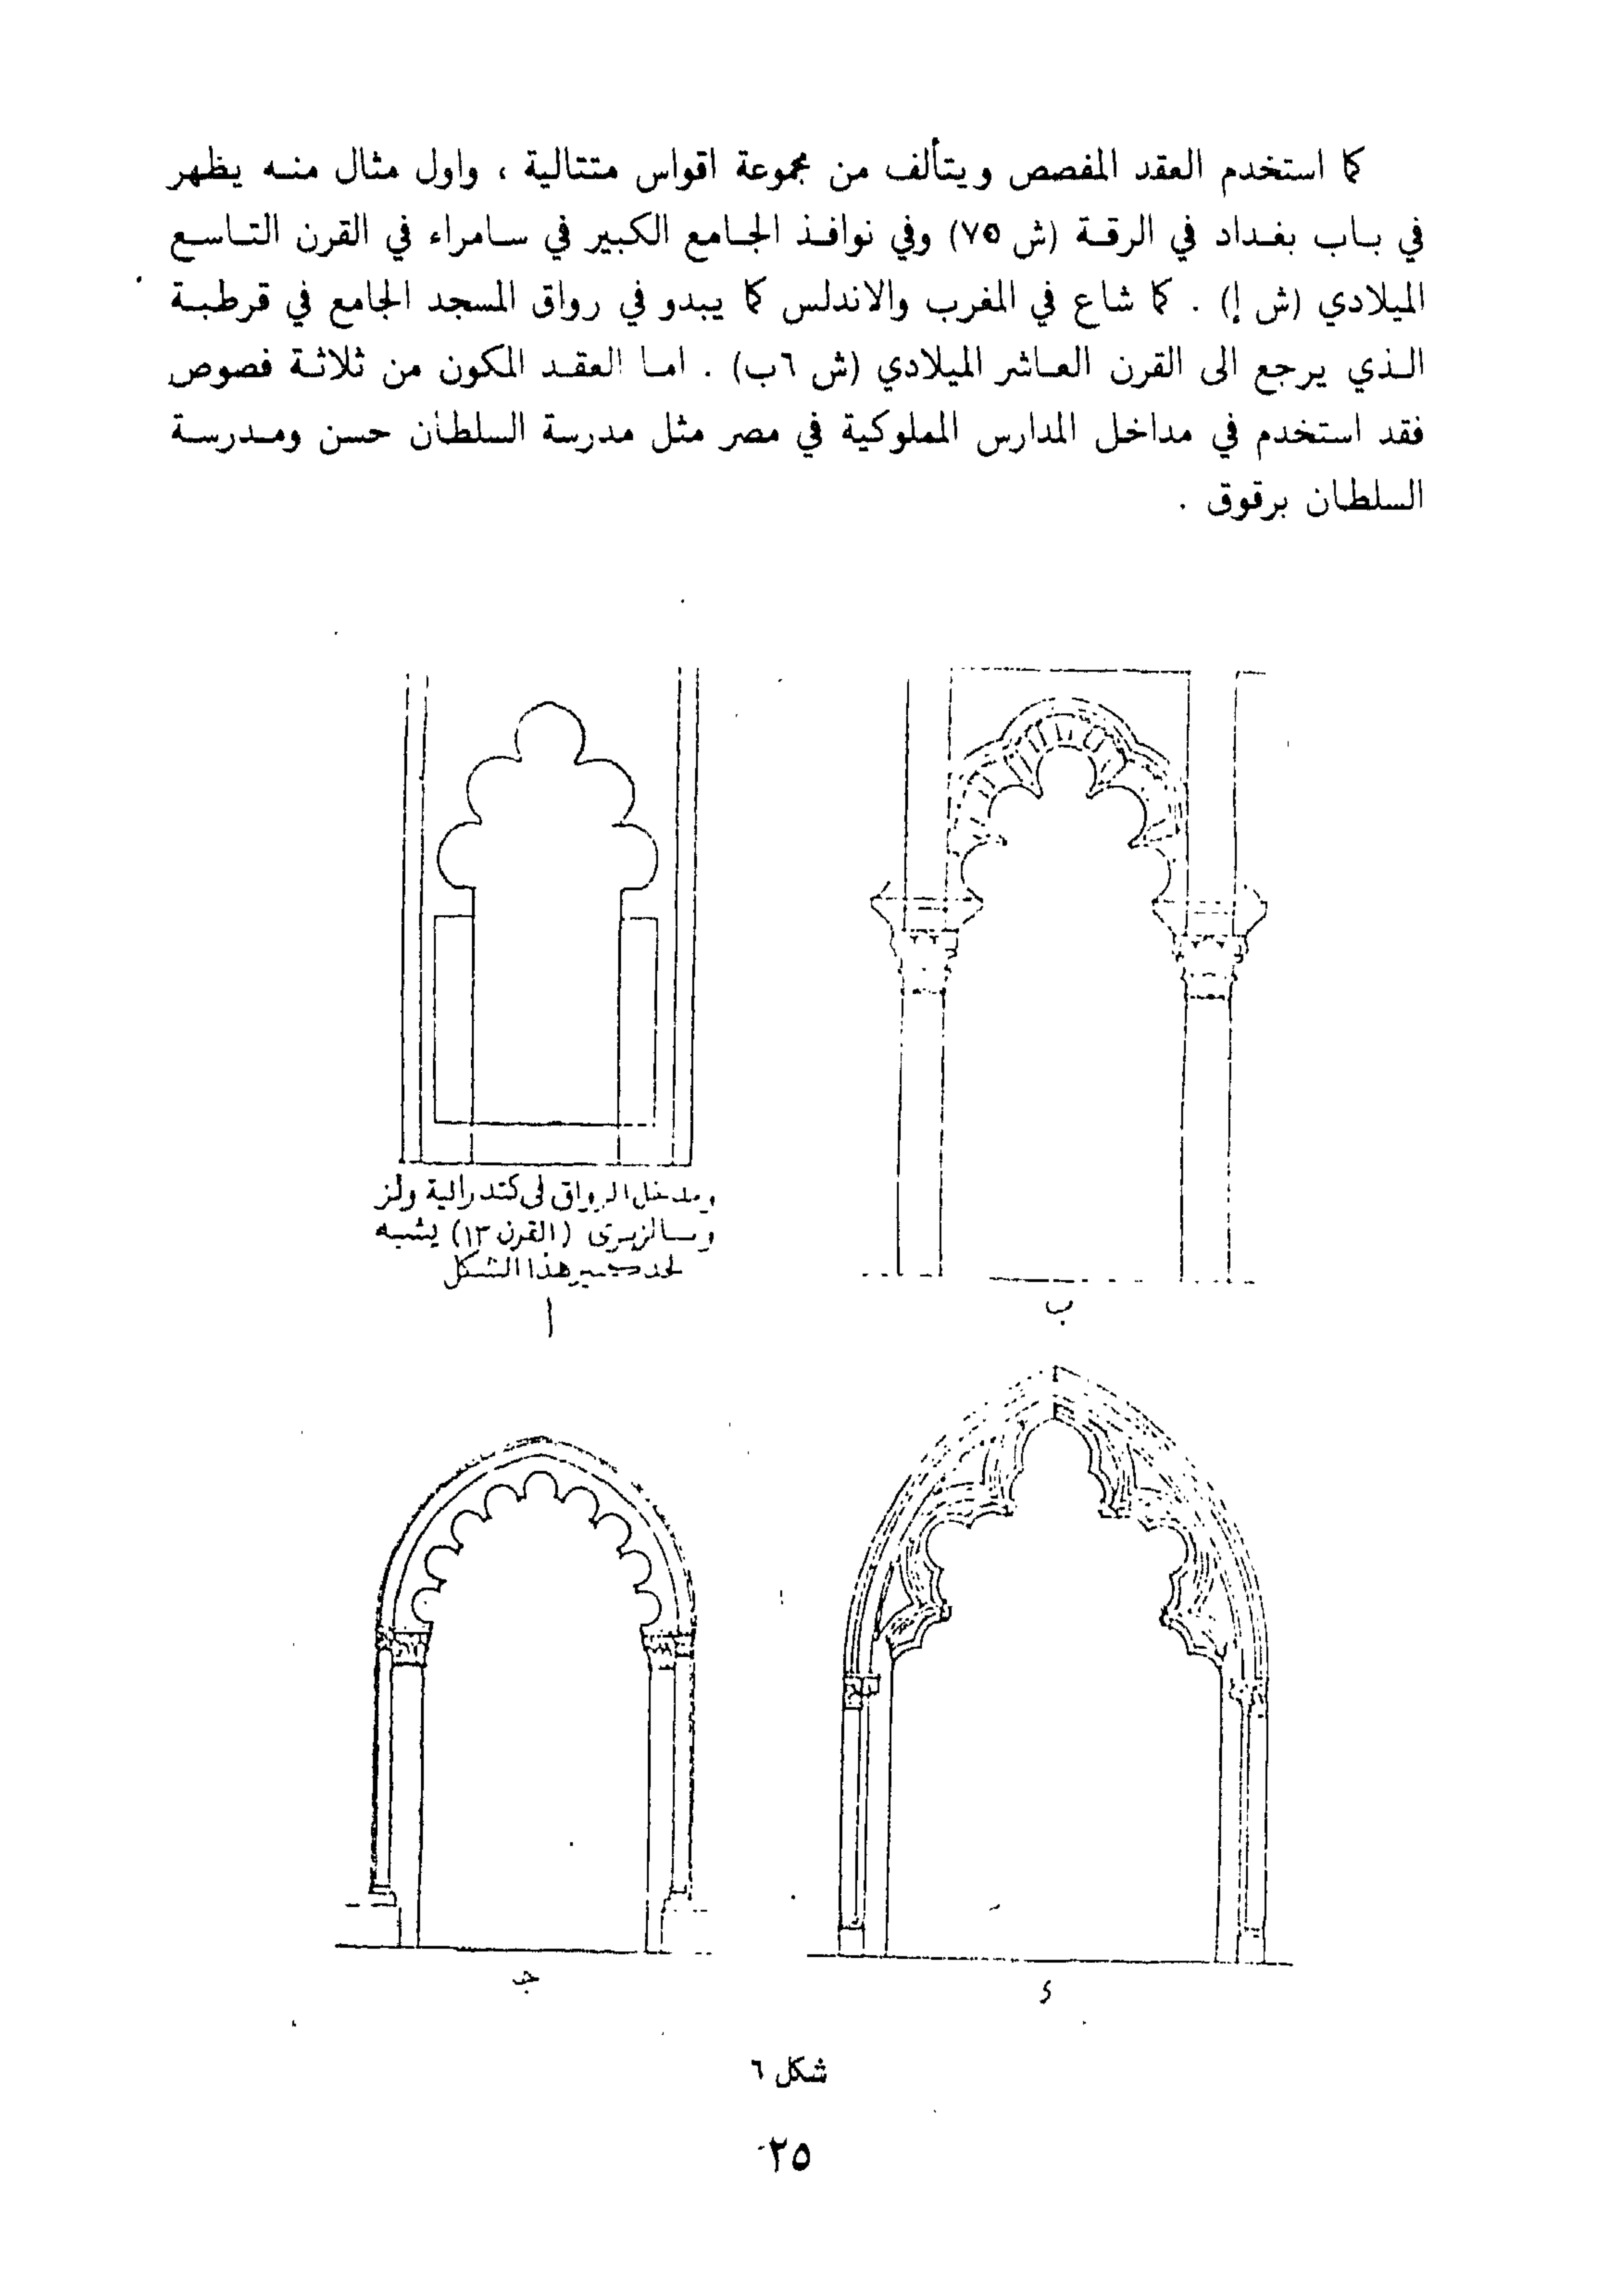 كما استخدم العقد المفصص ويتألف من مجموعة اقواس متتالية ، واول مثال منه يظهر
في باب بغداد في الرقة (ش ٧٥) وفي نوافذ الجامع الكبير في سامراء في القرن التاسع
الميلادي (ش إ) . كما شاع في المغرب والاندلس كما يبدو في رواق المسجد الجامع في قرطبة
الذي يرجع الى القرن العاشر الميلادي (ش ٦ب) . اما العقد المكون من ثلاثة فصوص
فقد استخدم في مداخل المدارس المملوكية في مصر مثل مدرسة السلطان حسن ومدرسة
السلطان برقوق .
ومدخل الرواق في كتدرالية ولز
وسالزبري (القرن ١٣) يشبه
لحد كبير هذا الشكل
أ
ب
جـ
د
شكل ٦
٢٥